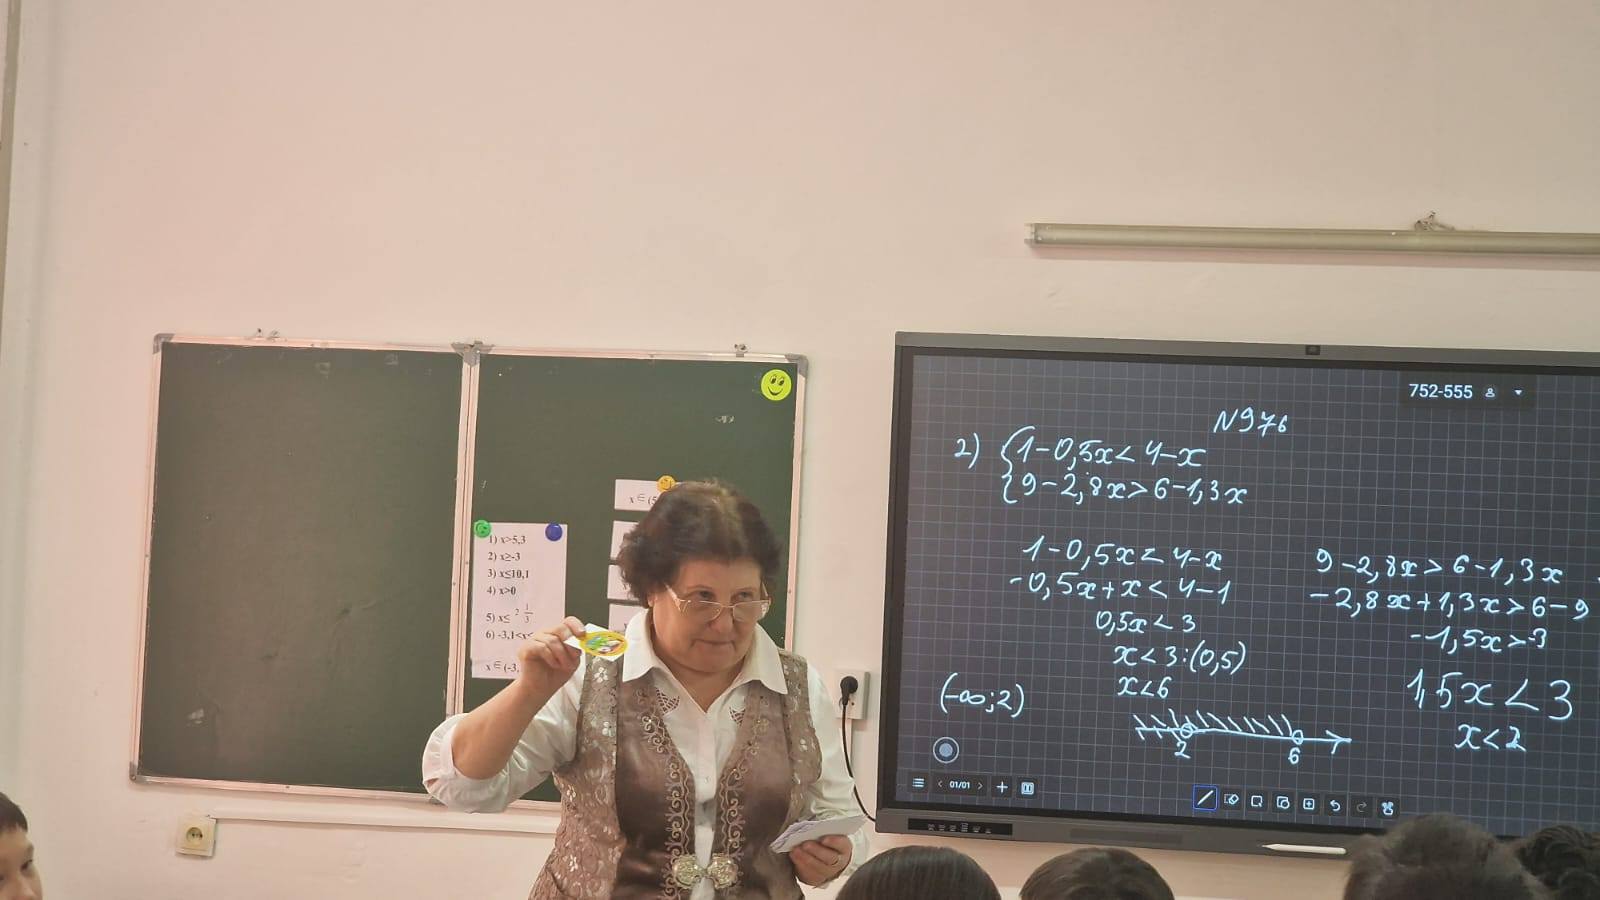 1) x>5,3
2) x≥-3
3) x≤10,1
4) x>0
5) x≤ 2 1/3
6) -3,1<x≤
x ∈ (-3,
x ∈ (5
752-555
N976
2) {1-0,5x<4-x
{9-2,8x>6-1,3x
1-0,5x<4-x
-0,5x+x<4-1
0,5x<3
x<3:(0,5)
x<6
9-2,8x>6-1,3x
-2,8x+1,3x>6-9
-1,5x>-3
1,5x<3
x<2
(-∞;2)
2 6
01/01